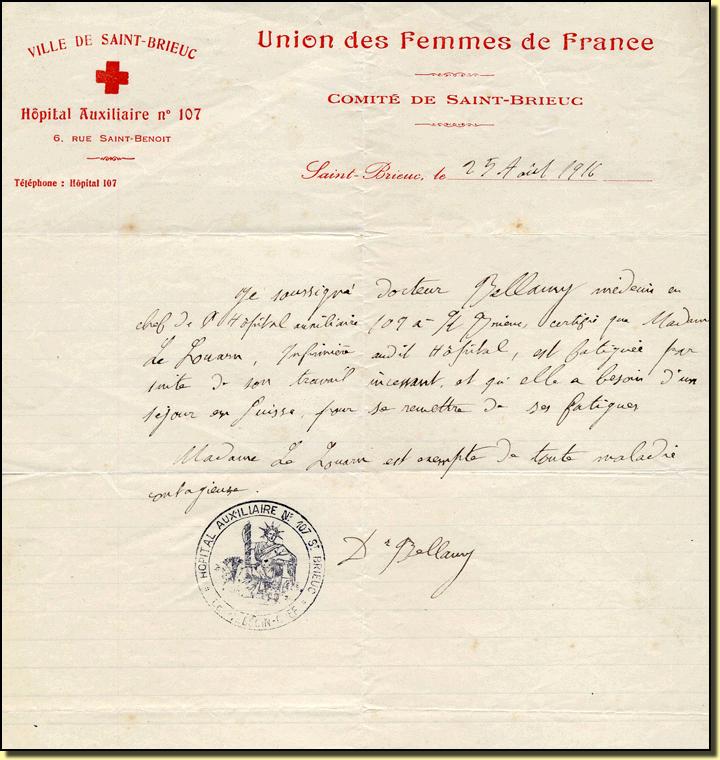 VILLE DE SAINT-BRIEUC
Hôpital Auxiliaire nº 107
6, RUE SAINT-BENOIT
Téléphone : Hôpital 107
Union des Femmes de France
COMITÉ DE SAINT-BRIEUC
Saint-Brieuc, le 25 Août 1916
Je soussigné docteur Bellamy médecin en
chef de l'Hôpital auxiliaire 107 à St Brieuc, certifie que Madame
Le Louarn, Infirmière audit Hôpital, est fatiguée par
suite de son travail incessant, et qu'elle a besoin d'un
séjour en Suisse, pour se remettre de ses fatigues
Madame Le Louarn est exempte de toute maladie
contagieuse.
Dr Bellamy
HOPITAL AUXILIAIRE Nº 107 ST BRIEUC
LE MÉDECIN-CHEF